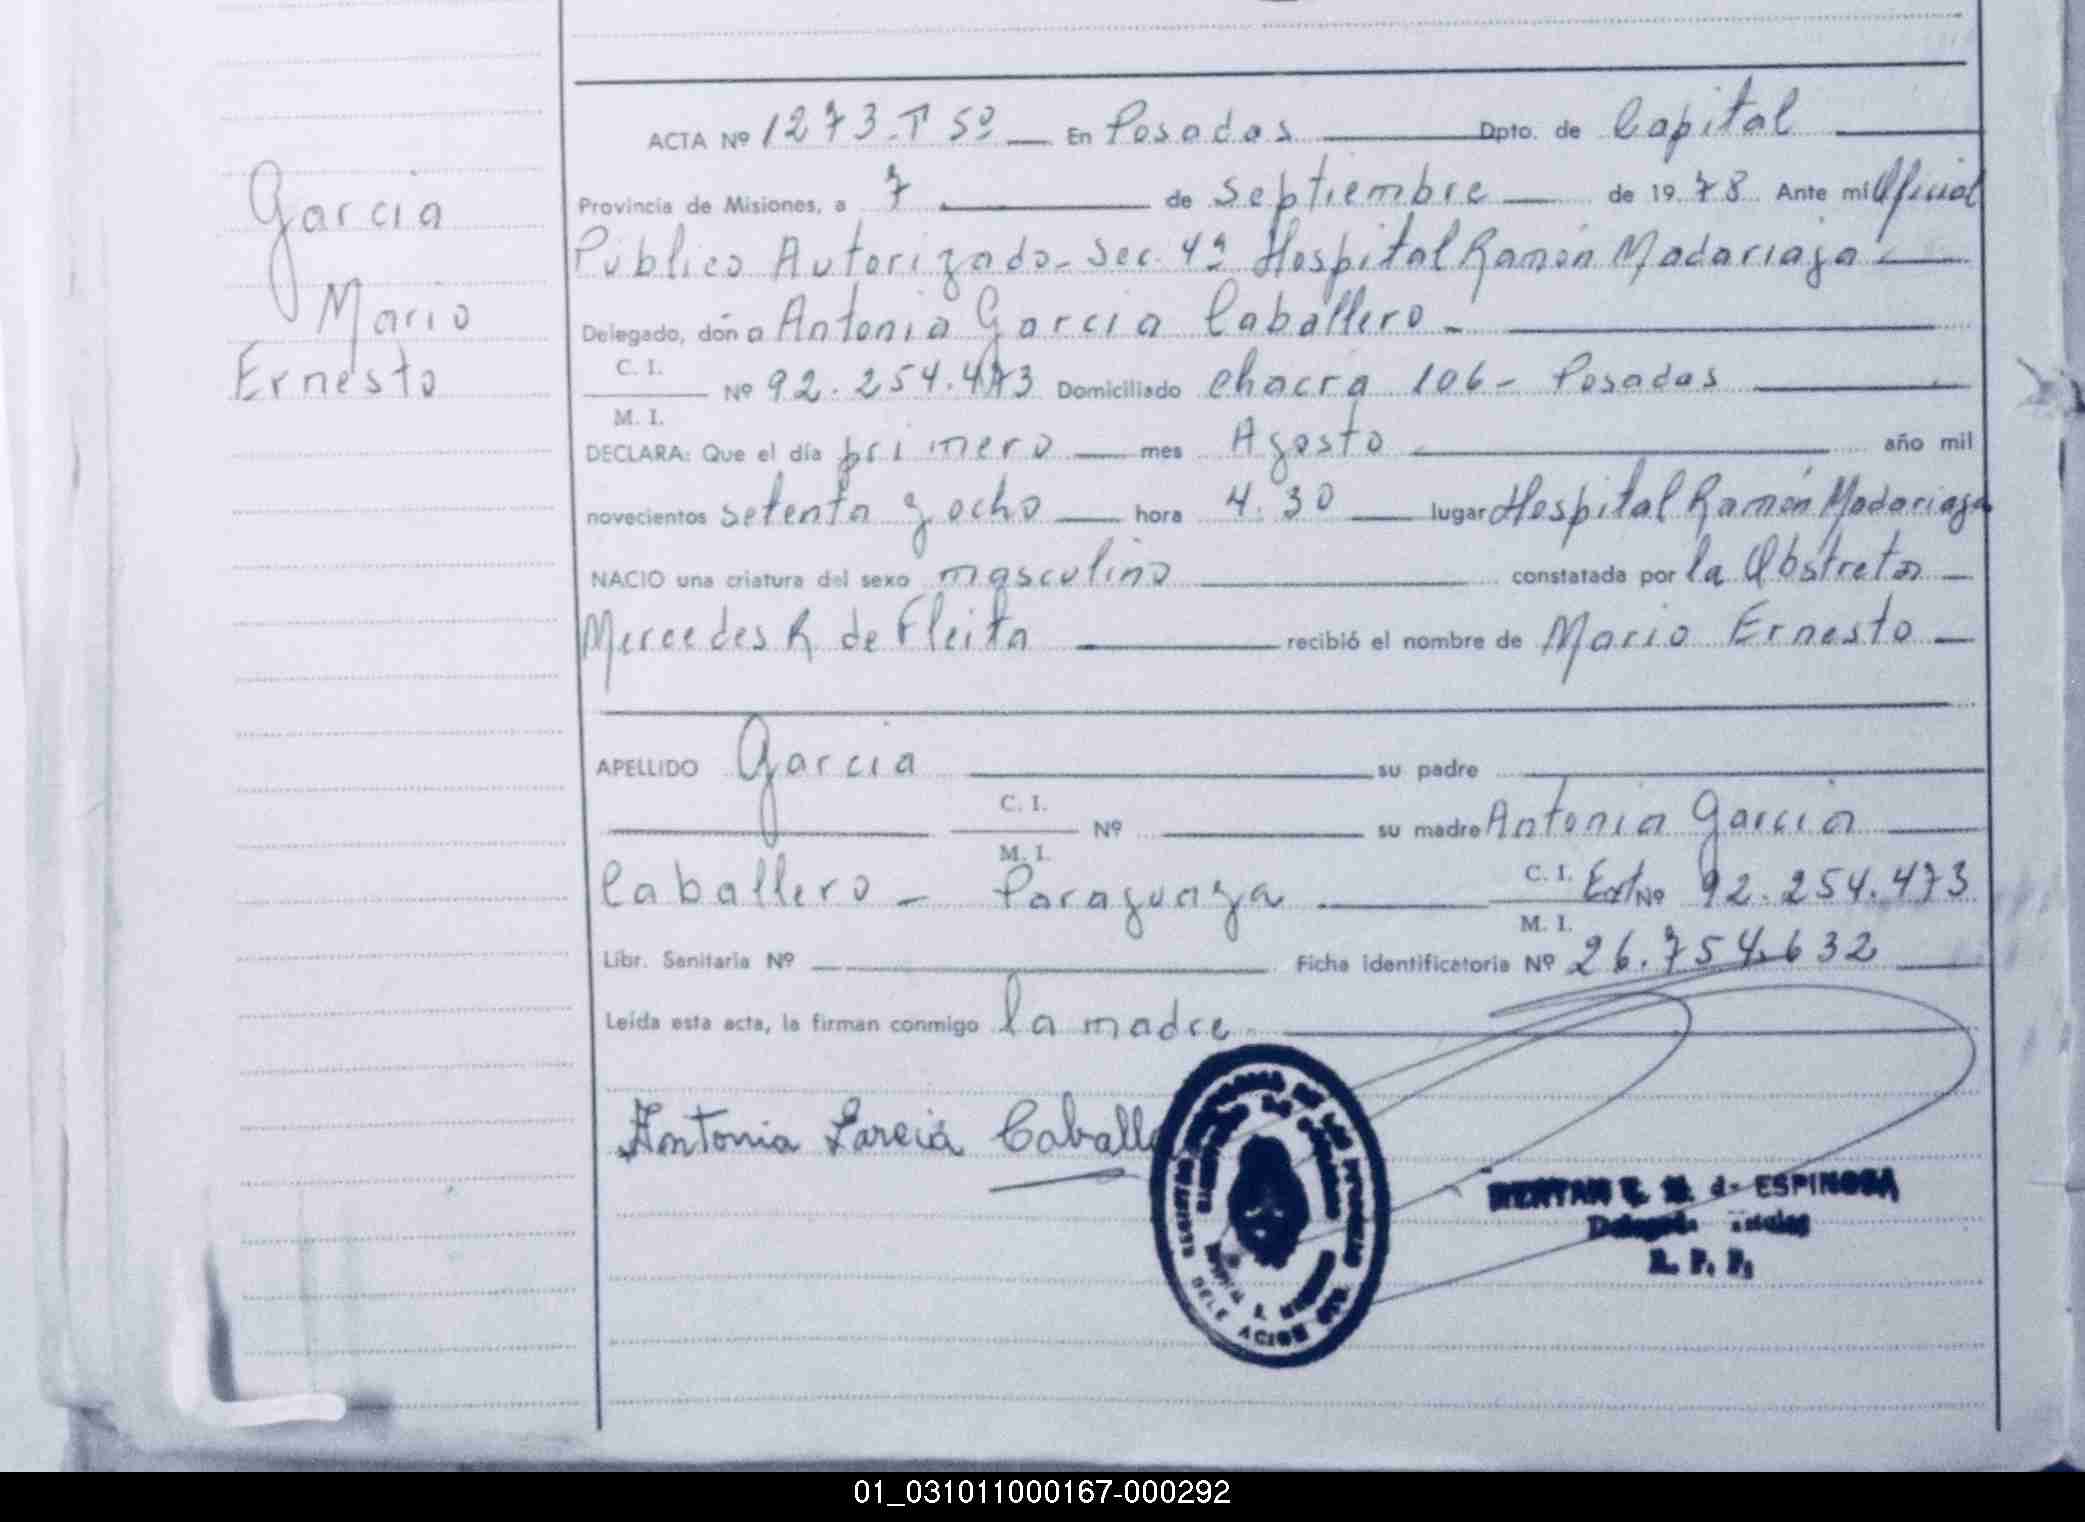 ACTA Nº 1273.Tº 5º En Posadas Dpto. de Capital
Provincia de Misiones, a 7 de septiembre de 1978 Ante mi Oficial
Público Autorizado - Sec. 4ª Hospital Ramón Madariaga
Garcia
Mario
Ernesto
Delegado, dón a Antonia Garcia Caballero -
C. I.
Nº 92.254.473 Domiciliado chacra 106 - Posadas
M. I.
DECLARA: Que el día primero mes Agosto año mil
novecientos setenta y ocho hora 4.30 lugar Hospital Ramón Madariaga
NACIO una criatura del sexo masculino constatada por la Obstreta
Mercedes R de Fleita recibió el nombre de Mario Ernesto
APELLIDO Garcia su padre
C. I.
Nº su madre Antonia Garcia
M. I.
Caballero - Paraguaya C. I. Ext Nº 92.254.473
M. I.
Libr. Sanitaria Nº Ficha identificatoria Nº 26.754.632
Leída esta acta, la firman conmigo la madre
Antonia Garcia Caballe
de ESPINOSA
R. P. P.
01_031011000167-000292